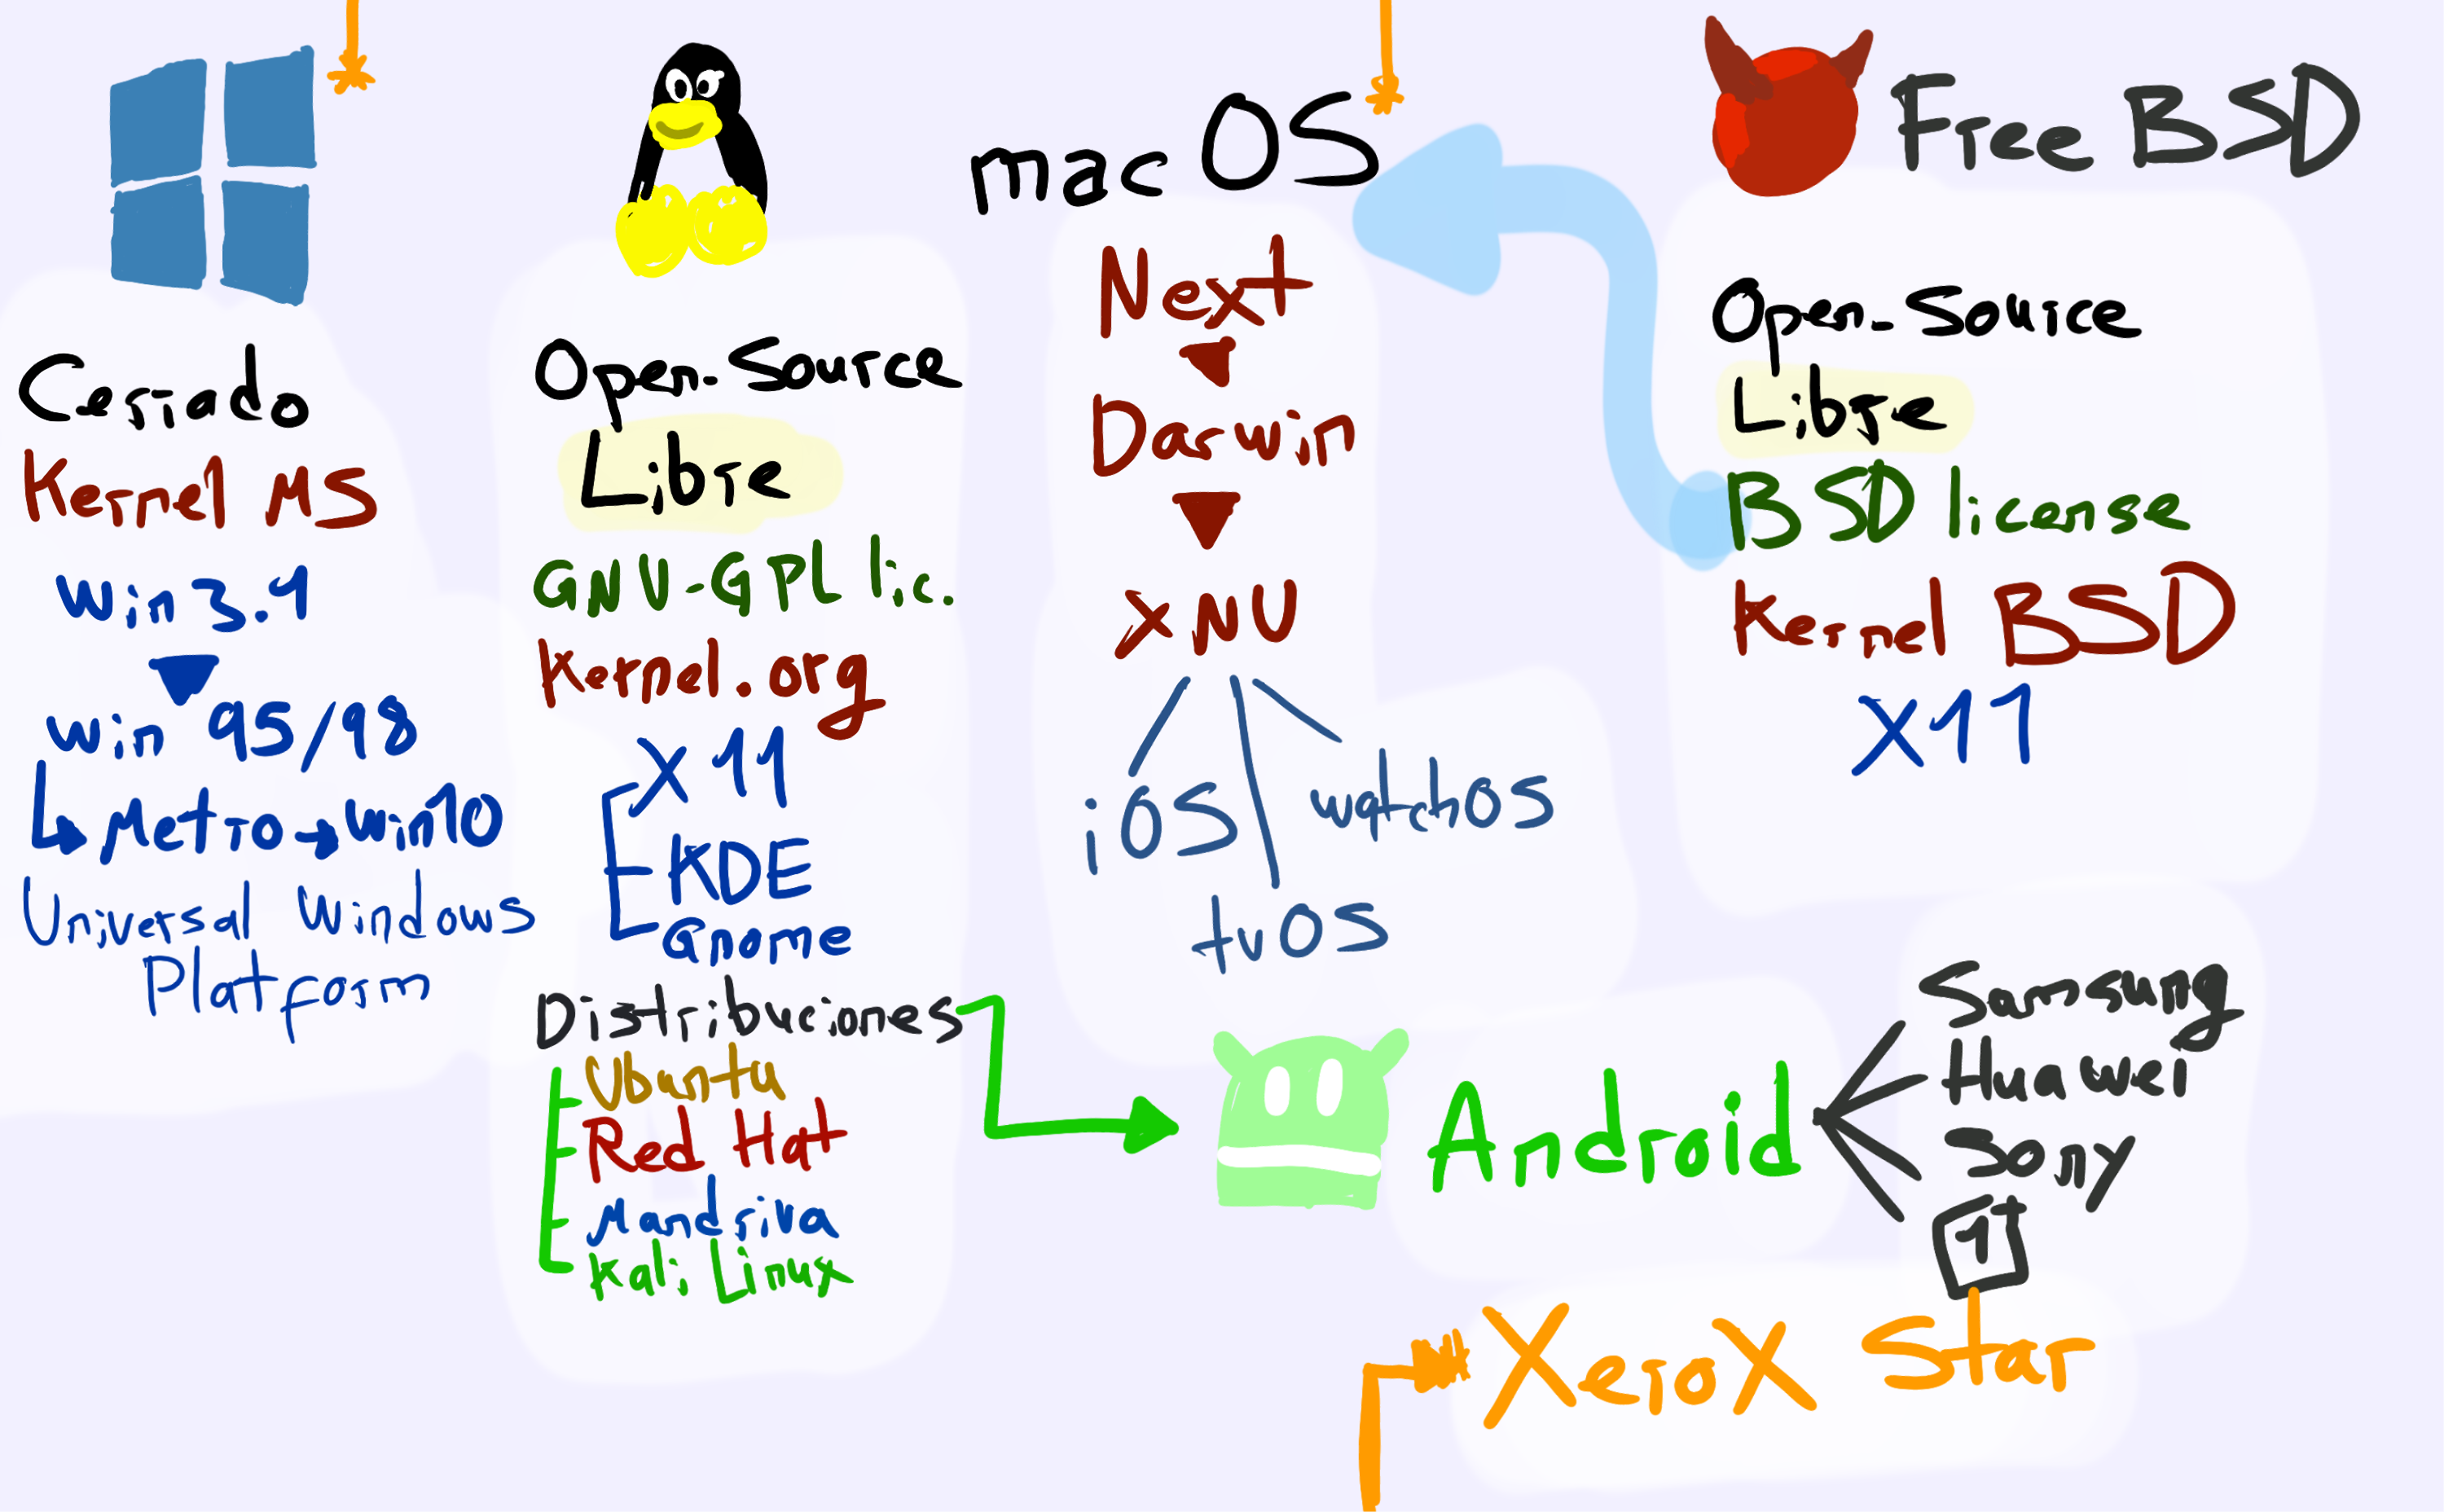 Cerrado
Kernel MS
Win 3.1
Win 95/98
Metro → Win10
Universal Windows
Platform
Open-Source
Libre
GNU-GPL lic.
Kernel.org
X11
KDE
Gnome
Distribuciones
Ubuntu
Red Hat
Mandriva
Kali Linux
mac OS
Next
Darwin
XNU
iOS
watchOS
tvOS
Free BSD
Open-Source
Libre
BSD license
Kernel BSD
X11
Android
Samsung
Huawei
Sony
1+
Xerox Star